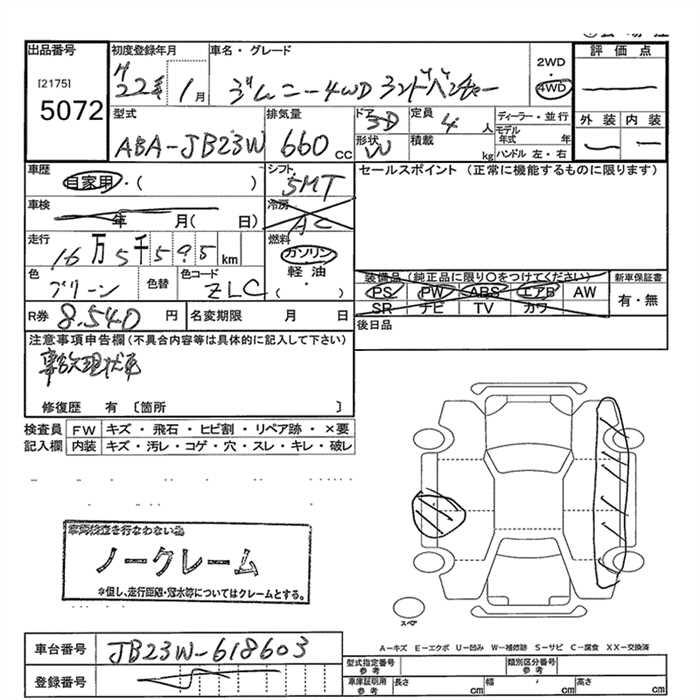 出品番号
[2175]
5072
初度登録年月
H22年 1月
車名・グレード
ジムニー4WD ランドベンチャー
2WD
・
4WD
評価点
外装 内装
型式
ABA-JB23W
排気量
660 cc
ドア
3D
形状
W
定員
4人
積載
kg
ディーラー・並行
モデル年式 年
ハンドル 左・右
車歴
自家用・( )
シフト
5MT
セールスポイント (正常に機能するものに限ります)
車検
年 月( 日)
冷房
AC
走行
16万5千595km
燃料
ガソリン
軽油
( )
色
グリーン
色替
色コード
ZLC
装備品 (純正品に限り○をつけてください)
PS PW ABS エアB AW
SR ナビ TV カワ
新車保証書
有・無
R券 8,540円
名変期限 月 日
後日品
注意事項申告欄(不具合内容等は具体的に記入して下さい)
修復歴 有〔箇所 〕
検査員記入欄
FW キズ・飛石・ヒビ割・リペア跡・×要
内装 キズ・汚レ・コゲ・穴・スレ・キレ・破レ
車両検査を行わない為
ノークレーム
※但し、走行距離・冠水等についてはクレームとする。
スペア
A-キズ E-エクボ U-凹み W-補修跡 S-サビ C-腐食 XX-交換済
車台番号 JB23W-618603
登録番号
型式指定番号参考
類別区分番号参考
車庫証明用参考
長さ cm
幅 cm
高さ cm